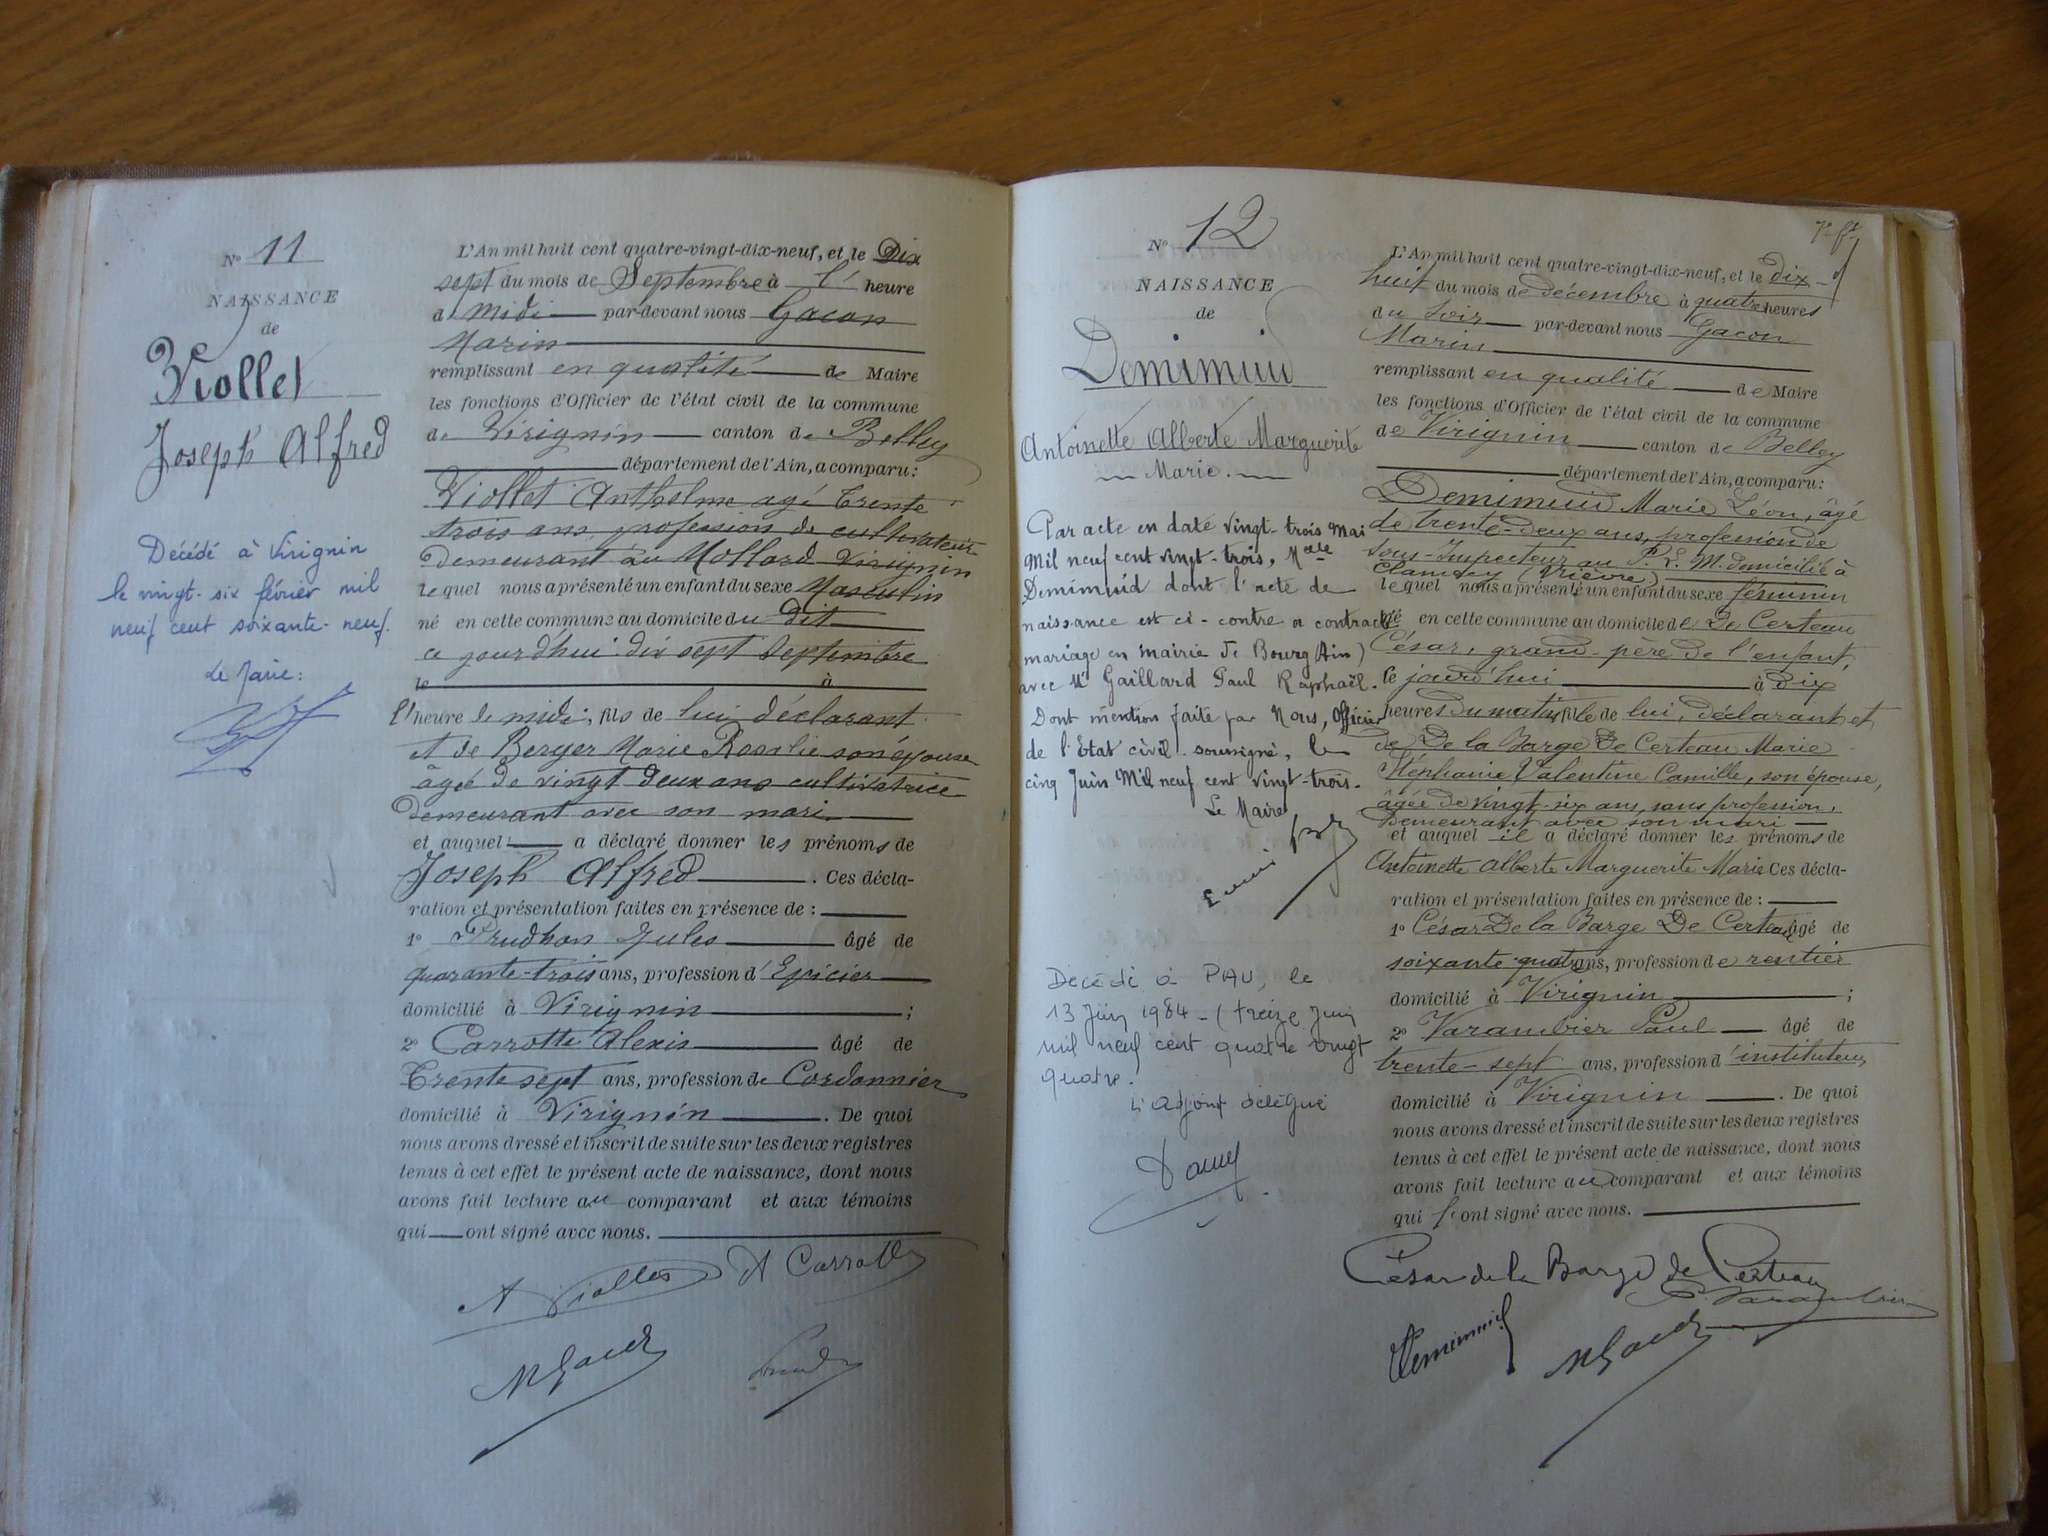 N° 11
NAISSANCE
de
Viollet
Joseph Alfred
Décédé à Virignin
le vingt-six février mil
neuf cent soixante-neuf.
Le Maire:
L'An mil huit cent quatre-vingt-dix-neuf, et le Dix
sept du mois de Septembre à l' heure
de midi par-devant nous Gacon
Marin
remplissant en qualité de Maire
les fonctions d'Officier de l'état civil de la commune
de Virignin canton de Belley
département de l'Ain, a comparu:
Viollet Anthelme agé Trente
trois ans, profession de cultivateur
demeurant au Mollard Virignin
lequel nous a présenté un enfant du sexe Masculin
né en cette commune au domicile du Dit
ce jourd'hui dix sept Septembre
le à
l'heure de midi, fils de lui, déclarant
et de Berger Marie Rosalie son épouse
âgée de vingt deux ans cultivatrice
demeurant avec son mari
et auquel a déclaré donner les prénoms de
Joseph Alfred. Ces décla-
ration et présentation faites en présence de :
1° Prudhon Jules âgé de
quarante-trois ans, profession d'Epicier
domicilié à Virignin ;
2° Carrotte Alexis âgé de
Trente sept ans, profession de Cordonnier
domicilié à Virignin. De quoi
nous avons dressé et inscrit de suite sur les deux registres
tenus à cet effet le présent acte de naissance, dont nous
avons fait lecture au comparant et aux témoins
qui ont signé avec nous.
A Viollet A Carrotte
M Gacon
N° 12
NAISSANCE
de
Demimuid
Antoinette Alberte Marguerite
Marie.
Par acte en date vingt-trois Mai
Mil neuf cent vingt-trois, Melle
Demimuid dont l'acte de
naissance est ci-contre a contracté
mariage en mairie de Bourg (Ain)
avec Mr Gaillard Paul Raphaël.
Dont mention faite par Nous, Officier
de l'Etat civil soussigné, le
cinq Juin Mil neuf cent vingt-trois.
Le Maire
Décédé à PAU, le
13 Juin 1984 - (treize Juin
mil neuf cent quatre vingt
quatre.
L'adjoint délégué
L'An mil huit cent quatre-vingt-dix-neuf, et le dix-
huit du mois de décembre à quatre heures
du soir par-devant nous Gacon
Marin
remplissant en qualité de Maire
les fonctions d'Officier de l'état civil de la commune
de Virignin canton de Belley
département de l'Ain, a comparu:
Demimuid Marie Léon, âgé
de trente-deux ans, profession de
Sous-Inspecteur au P. L. M. domicilié à
lequel nous a présenté un enfant du sexe féminin
né en cette commune au domicile de De Certeau
César, grand-père de l'enfant,
le jourd'hui à dix
heures du matin fille de lui, déclarant et
de De la Barge De Certeau Marie
Stéphanie Valentine Camille, son épouse,
âgée de vingt-six ans, sans profession,
Demeurant avec son mari
et auquel il a déclaré donner les prénoms de
Antoinette Alberte Marguerite Marie Ces décla-
ration et présentation faites en présence de :
1° César De la Barge De Certeau âgé de
soixante-quatre ans, profession de rentier
domicilié à Virignin ;
2° Varambier Paul âgé de
trente-sept ans, profession d'instituteur
domicilié à Virignin. De quoi
nous avons dressé et inscrit de suite sur les deux registres
tenus à cet effet le présent acte de naissance, dont nous
avons fait lecture au comparant et aux témoins
qui l'ont signé avec nous.
César de la Barge de Certeau
P. Varambier
Demimuid M Gacon